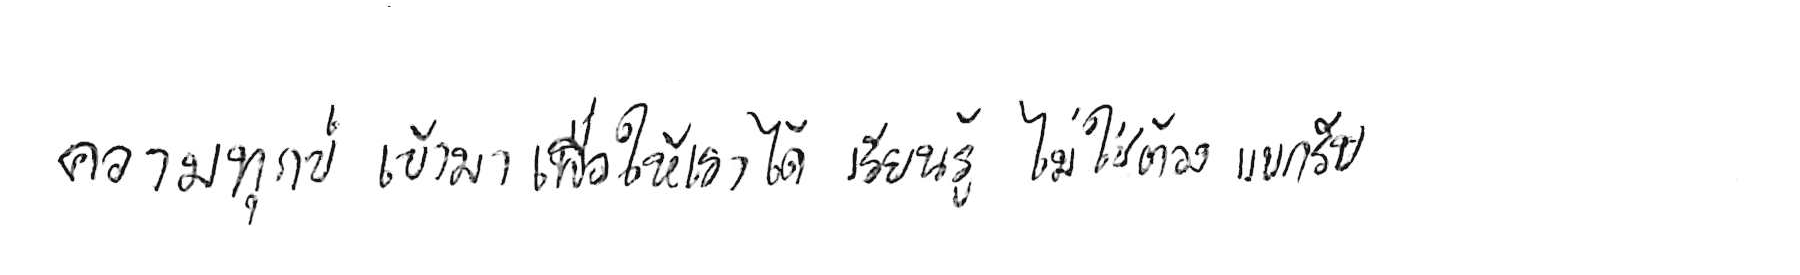 ความทุกข์ เข้ามา เพื่อให้เราได้ เรียนรู้ ไม่ใช่ต้อง แบกรับ